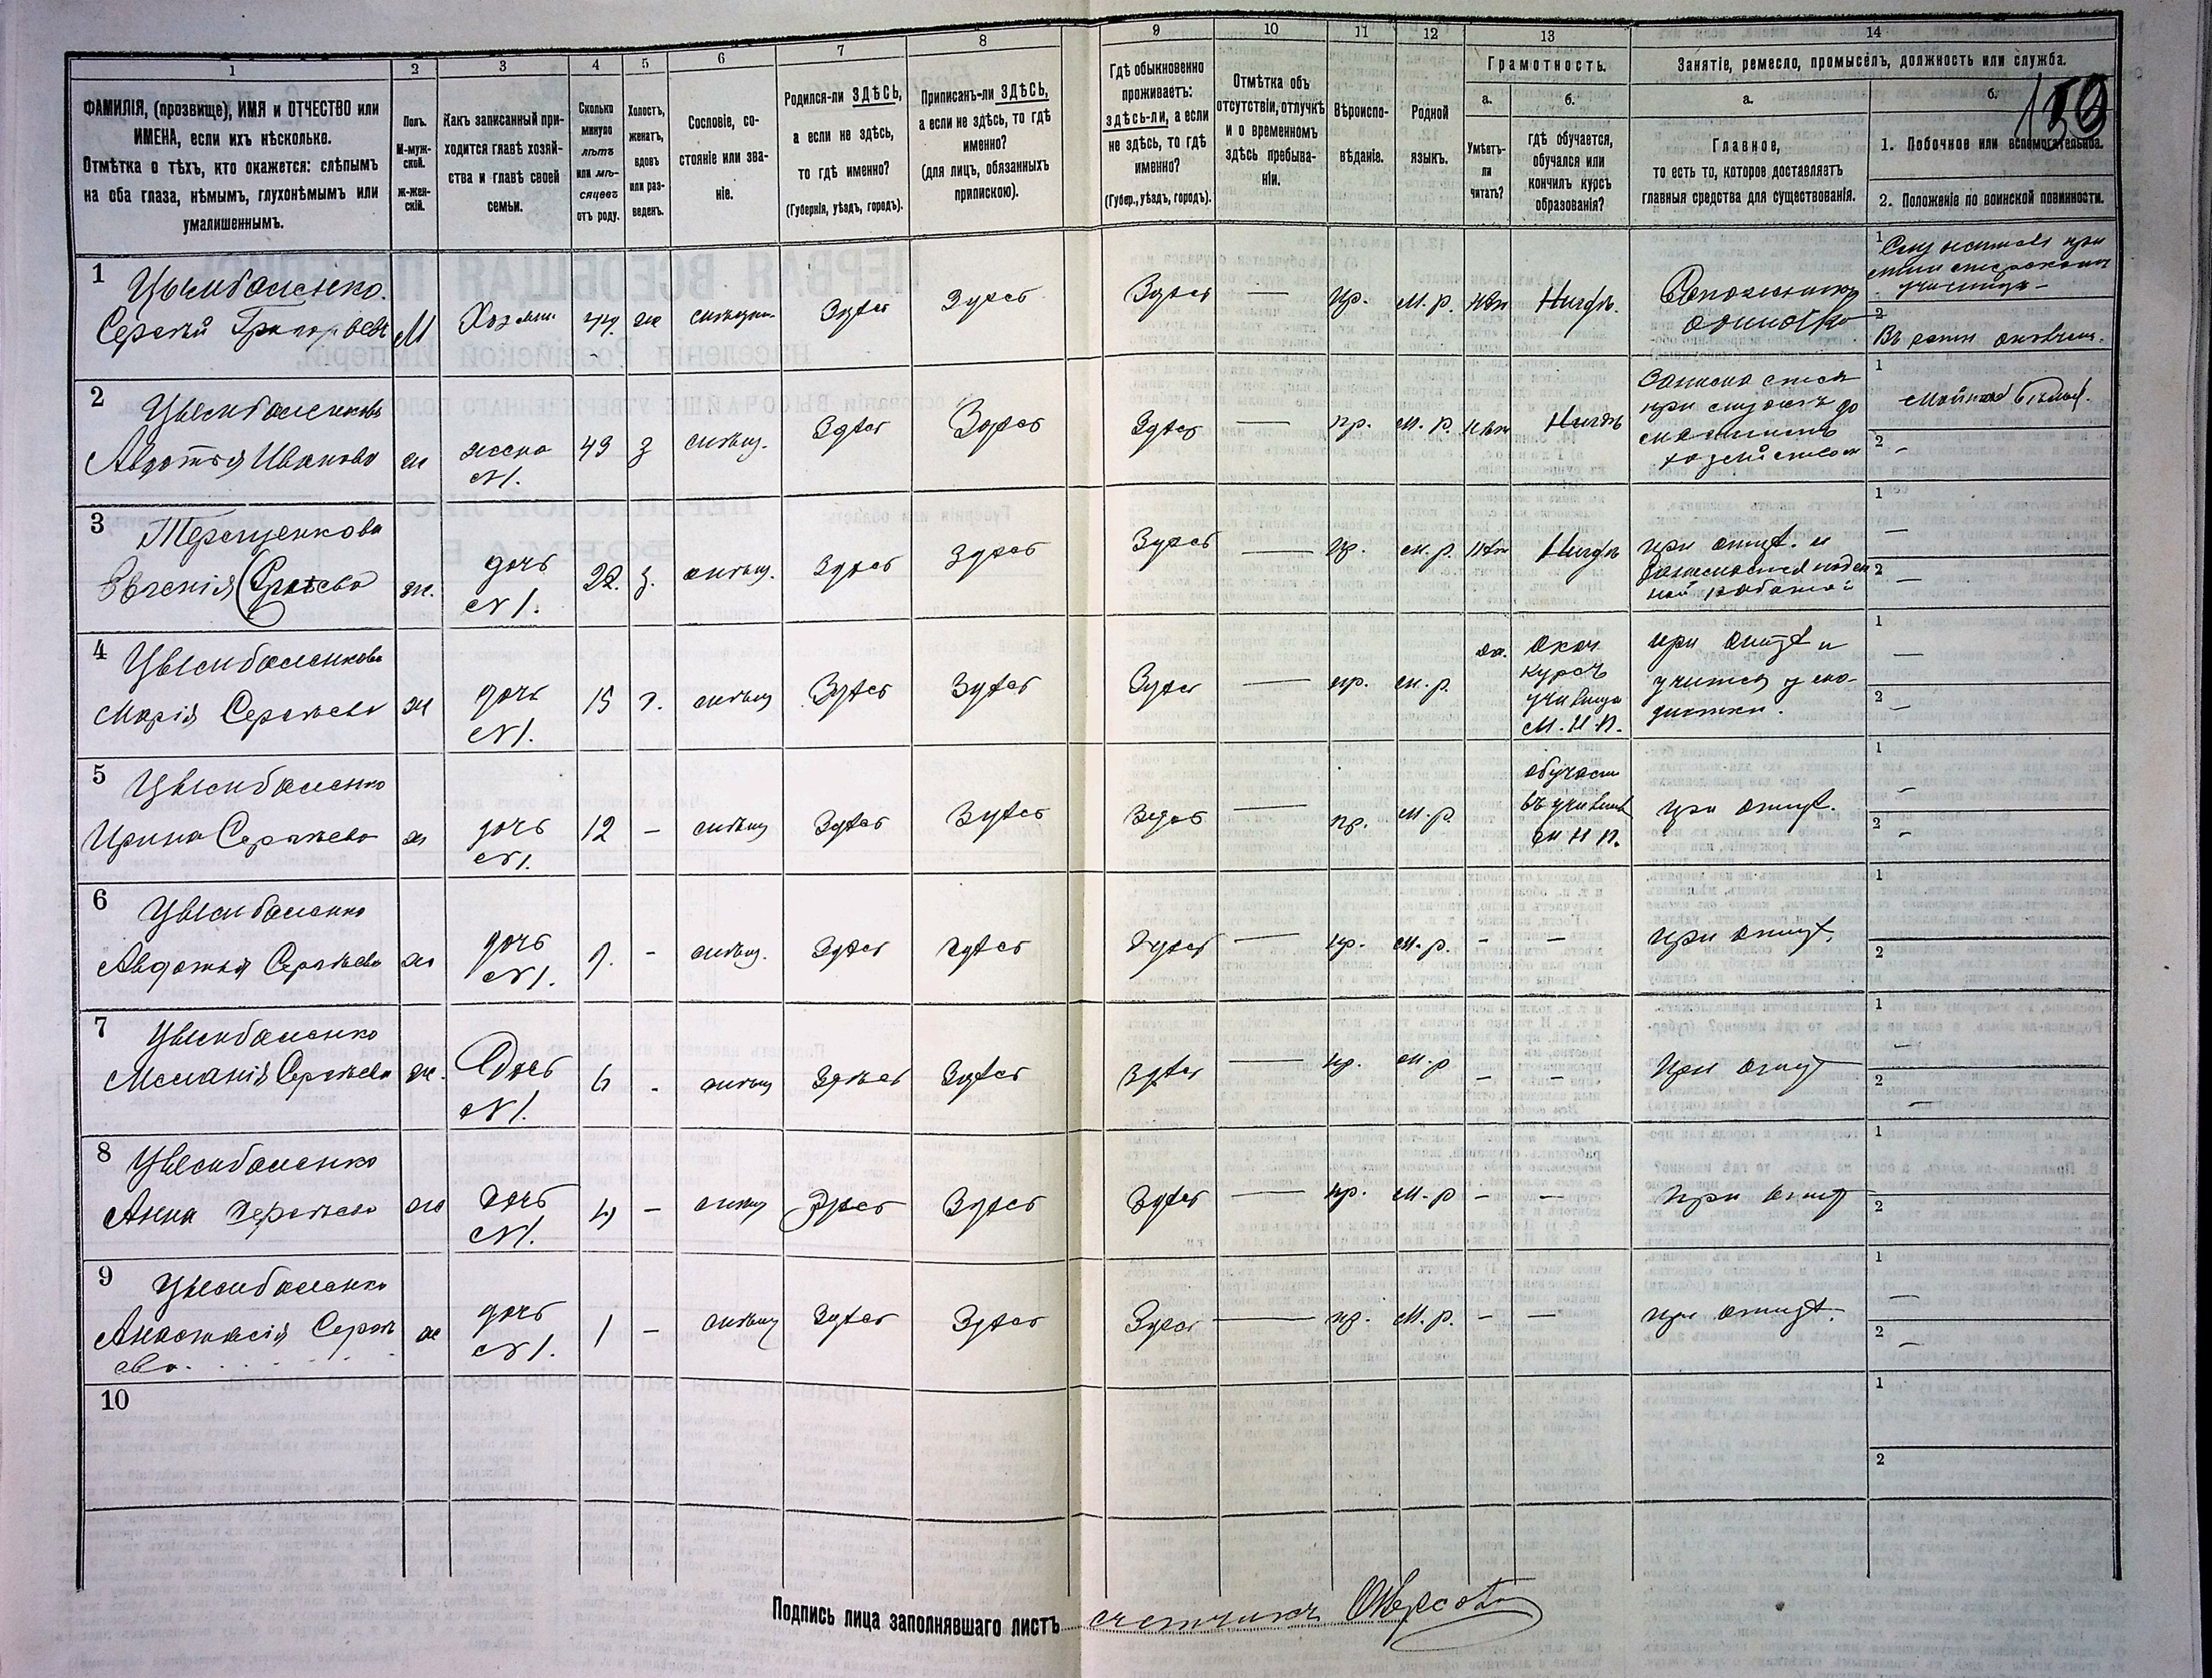 1 2 3 4 5 6 7 8 9 10 11 12 13 14
ФАМИЛІЯ, (прозвище), ИМЯ и ОТЧЕСТВО или
ИМЕНА, если ихъ нѣсколько.
Отмѣтка о тѣхъ, кто окажется: слѣпымъ
на оба глаза, нѣмымъ, глухонѣмымъ или
умалишеннымъ.
Полъ.
М-муж-
ской.
Ж-жен-
скій.
Какъ записанный при-
ходится главѣ хозяй-
ства и главѣ своей
семьи.
Сколько
минуло
лѣтъ
или мѣ-
сяцевъ
отъ роду.
Холостъ,
женатъ,
вдовъ
или раз-
веденъ.
Сословіе, со-
стояніе или зва-
ніе.
Родился-ли ЗДѢСЬ,
а если не здѣсь,
то гдѣ именно?
(Губернія, уѣздъ, городъ).
Приписанъ-ли ЗДѢСЬ,
а если не здѣсь, то гдѣ
именно?
(для лицъ, обязанныхъ
припискою).
Гдѣ обыкновенно
проживаетъ:
здѣсь-ли, а если
не здѣсь, то гдѣ
именно?
(Губер., уѣздъ, городъ).
Отмѣтка объ
отсутствіи, отлучкѣ
и о временномъ
здѣсь пребыва-
ніи.
Вѣроиспо-
вѣданіе.
Родной
языкъ.
Грамотность.
а.
Умѣетъ-
ли
читать?
б.
гдѣ обучается,
обучался или
кончилъ курсъ
образованія?
Занятіе, ремесло, промыселъ, должность или служба.
а.
Главное,
то есть то, которое доставляетъ
главныя средства для существованія.
б.
150
1. Побочное или вспомогательное.
2. Положеніе по воинской повинности.
1
Цымбаленко
Сергѣй Григорьевъ
М
Хозяин
44
ж
мѣщан.
Здѣсь
Здѣсь
Здѣсь
—
пр.
м. р.
нѣт
Нигдѣ.
1
2
2
Цымбаленкова
Авдотья Иванова
ж
жена
№1.
43
з
мѣщ.
Здѣсь
Здѣсь
Здѣсь
—
пр.
м. р.
нѣт
Нигдѣ
1
2 —
3
Терещенкова
Евгенія Сергѣева
ж.
дочь
№1.
22.
з.
мѣщ.
Здѣсь
Здѣсь
Здѣсь
—
пр.
м. р.
нѣт
Нигдѣ
при отцѣ. и
1 —
2 —
4
Цымбаленкова
Марія Сергѣева
ж
дочь
№1.
15
мѣщ
Здѣсь
Здѣсь
Здѣсь
пр.
м. р.
да.
окон.
курсъ
училища
М. Н. П.
при отцѣ и
учится у мо-
дистки.
1 —
2 —
5
Цымбаленко
Ирина Сергѣева
ж
дочь
№1.
12
—
мѣщ
Здѣсь
Здѣсь
Здѣсь
—
пр.
м. р.
обучает
въ училищ
М Н П.
при отцѣ.
1 —
2 —
6
Цымбаленко
Авдотья Сергѣева
ж
дочь
№1.
-
мѣщ.
Здѣсь
Здѣсь
Здѣсь
—
пр.
м. р.
-
-
при отцѣ.
1
2
7
Цымбаленко
Меланія Сергѣева
ж.
Дочь
№1.
6
-
мѣщ
Здѣсь
Здѣсь
Здѣсь
—
пр.
м. р
-
-
При отцѣ
1 —
2 —
8
Цымбаленко
Анна Сергѣева
ж
дочь
№1.
4
—
мѣщ
Здѣсь
Здѣсь
Здѣсь
—
пр.
м. р
-
-
при отцѣ
1
2
9
Цымбаленко
Анастасія Сергѣ
ева.
ж
дочь
№1.
1
—
мѣщ
Здѣсь
Здѣсь
Здѣсь
—
пр.
м. р.
-
—
при отцѣ.
1 —
2 —
10
1
2
Подпись лица заполнявшаго листъ счетчикъ